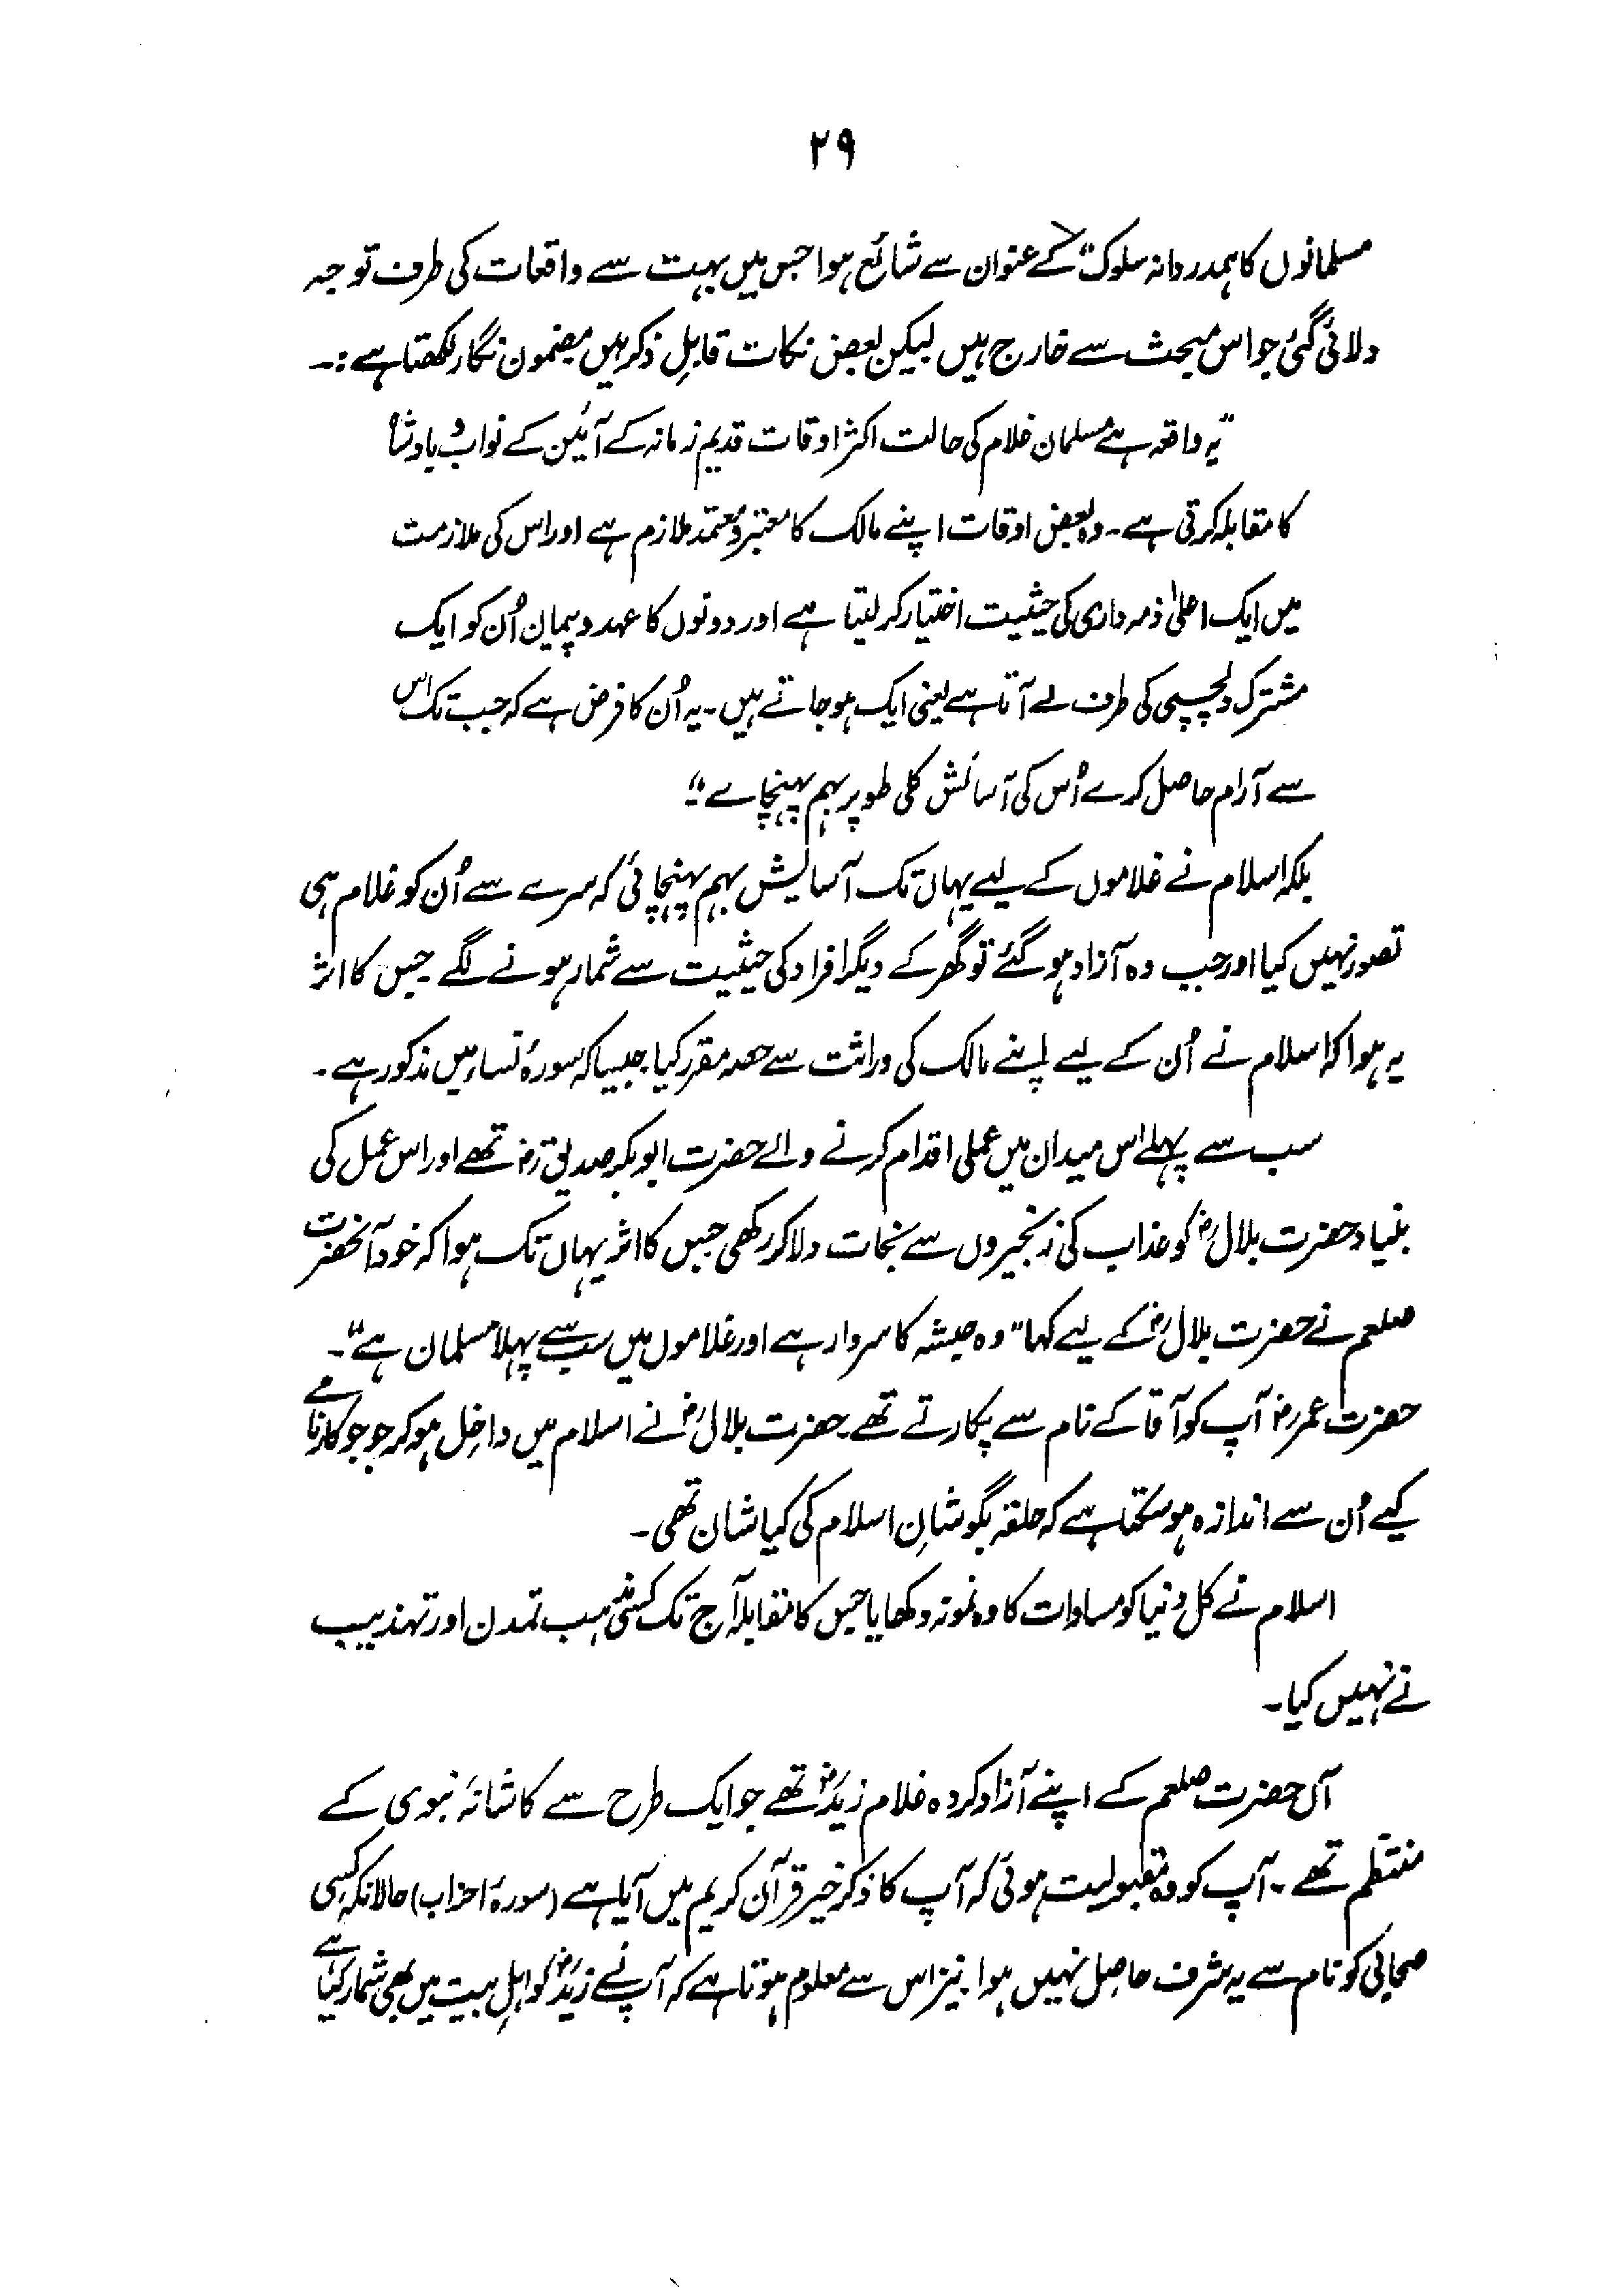 ۲۹
مسلمانوں کا ہمدردانہ سلوک" کے عنوان سے شائع ہوا جس میں بہت سے واقعات کی طرف توجہ
دلائی گئی جو اس مبحث سے خارج ہیں لیکن بعض نکات قابلِ ذکر ہیں مضمون نگار لکھتا ہے :۔
"یہ واقعہ ہے مسلمان غلام کی حالت اکثر اوقات قدیم زمانہ کے آئین کے نواب و بادشاہ
کا مقابلہ کرتی ہے۔ وہ بعض اوقات اپنے مالک کا معتبر و معتمد ملازم ہے اور اس کی ملازمت
میں ایک اعلیٰ ذمہ داری کی حیثیت اختیار کر لیتا ہے اور دونوں کا عہد و پیمان اُن کو ایک
مشترک دلچسپی کی طرف لے آتا ہے یعنی ایک ہو جاتے ہیں۔ یہ اُن کا فرض ہے کہ جب تک اس
سے آرام حاصل کرے اُس کی آسائش کلی طور پر بہم پہنچاے"۔
بلکہ اسلام نے غلاموں کے لیے یہاں تک آسایش بہم پہنچائی کہ سرے سے اُن کو غلام ہی
تصور نہیں کیا اور جب وہ آزاد ہو گئے تو گھر کے دیگر افراد کی حیثیت سے شمار ہونے لگے جس کا اثر
یہ ہوا کہ اسلام نے اُن کے لیے اپنے مالک کی وراثت سے حصہ مقرر کیا جیسا کہ سورۂ نساء میں مذکور ہے۔
سب سے پہلے اس میدان میں عملی اقدام کرنے والے حضرت ابو بکر صدیق رض تھے اور اس عمل کی
بنیاد حضرت بلالؓ کو عذاب کی زنجیروں سے نجات دلا کر رکھی جس کا اثر یہاں تک ہوا کہ خود آنحضرت
صلعم نے حضرت بلالؓ کے لیے کہا "وہ حبشہ کا سردار ہے اور غلاموں میں سب سے پہلا مسلمان ہے"۔
حضرت عمر رض آپ کو آقا کے نام سے پکارتے تھے۔ حضرت بلالؓ نے اسلام میں داخل ہو کر جو جو کارنامے
کیے اُن سے اندازہ ہو سکتا ہے کہ حلقہ بگوشانِ اسلام کی کیا شان تھی۔
اسلام نے کل دنیا کو مساوات کا وہ نمونہ دکھایا جس کا مقابلہ آج تک کسی مذہب تمدن اور تہذیب
نے نہیں کیا۔
آں حضرت صلعم کے اپنے آزاد کردہ غلام زیدؓ تھے جو ایک طرح سے کاشانۂ نبوی کے
منتظم تھے۔ آپ کو وہ مقبولیت ہوئی کہ آپ کا ذکر خیر قرآن کریم میں آیا ہے (سورۂ احزاب) حالانکہ کسی
صحابی کو نام سے یہ شرف حاصل نہیں ہوا نیز اس سے معلوم ہوتا ہے کہ آپ نے زیدؓ کو اہلِ بیت میں بھی شمار کیا ہے